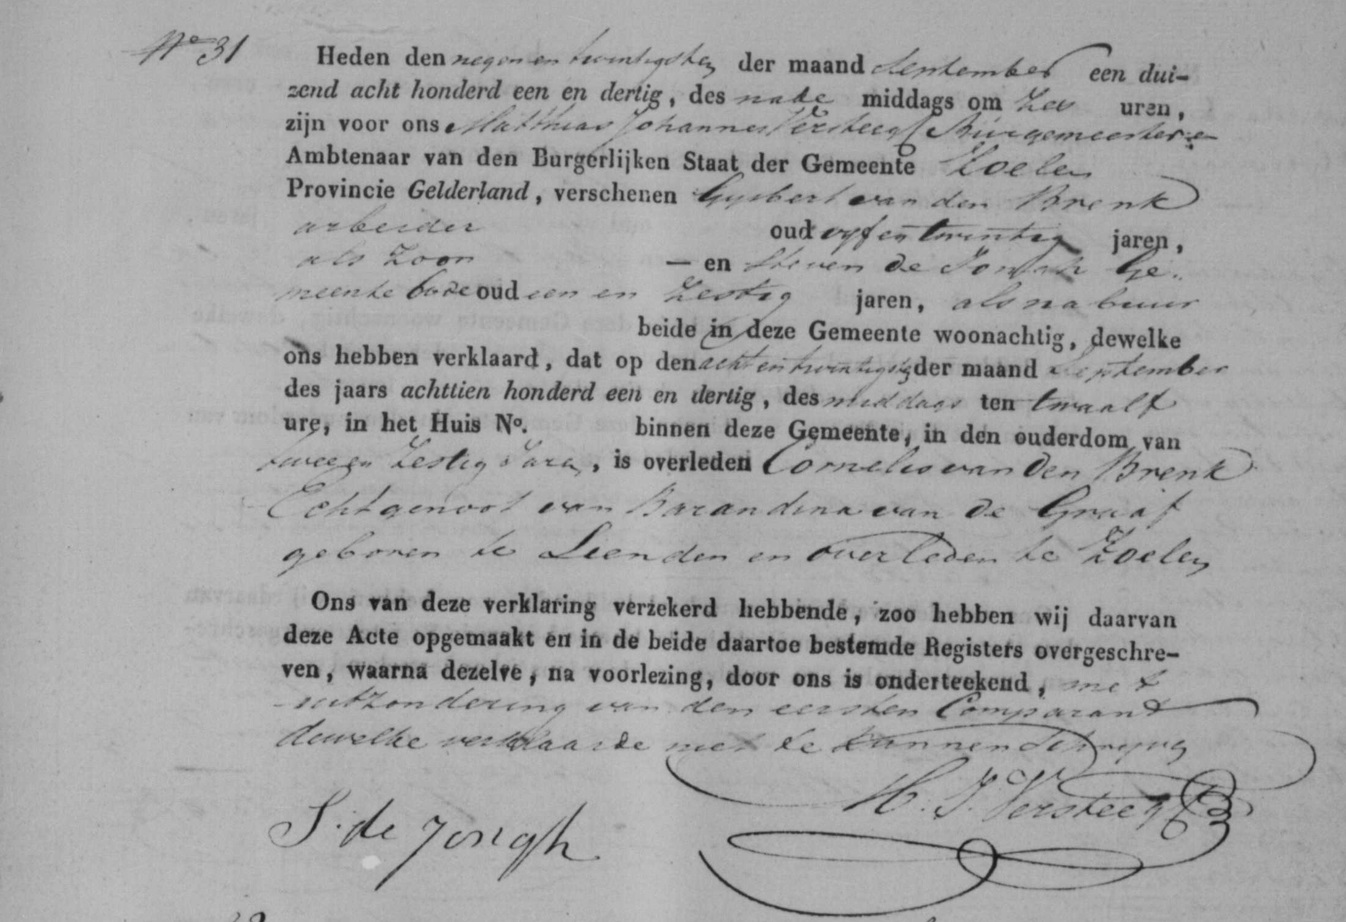 No 31
Heden den negen en twintigsten der maand September een dui-
zend acht honderd een en dertig, des nade middags om zes uren,
zijn voor ons Matthias Johannes Versteegh Burgemeester en
Ambtenaar van den Burgerlijken Staat der Gemeente Zoelen
Provincie Gelderland, verschenen Gysbert van den Brenk
arbeider oud vyf en twintig jaren,
als zoon — en Steven de Jongh Ge-
meente bode oud een en zestig jaren, als nabuur
beide in deze Gemeente woonachtig, dewelke
ons hebben verklaard, dat op den acht en twintigste der maand September
des jaars achttien honderd een en dertig, des middags ten twaalf
ure, in het Huis No. binnen deze Gemeente, in den ouderdom van
twee en zestig Jaren, is overleden Cornelis van den Brenk
Echtgenoot van Barandina van de Graaf
geboren te Lienden en overleden te Zoelen
Ons van deze verklaring verzekerd hebbende, zoo hebben wij daarvan
deze Acte opgemaakt en in de beide daartoe bestemde Registers overgeschre-
ven, waarna dezelve, na voorlezing, door ons is onderteekend, met
uitzondering van den eersten Comparant
dewelke verklaarde niet te kunnen schryven
M. J. Versteegh
S. de Jongh